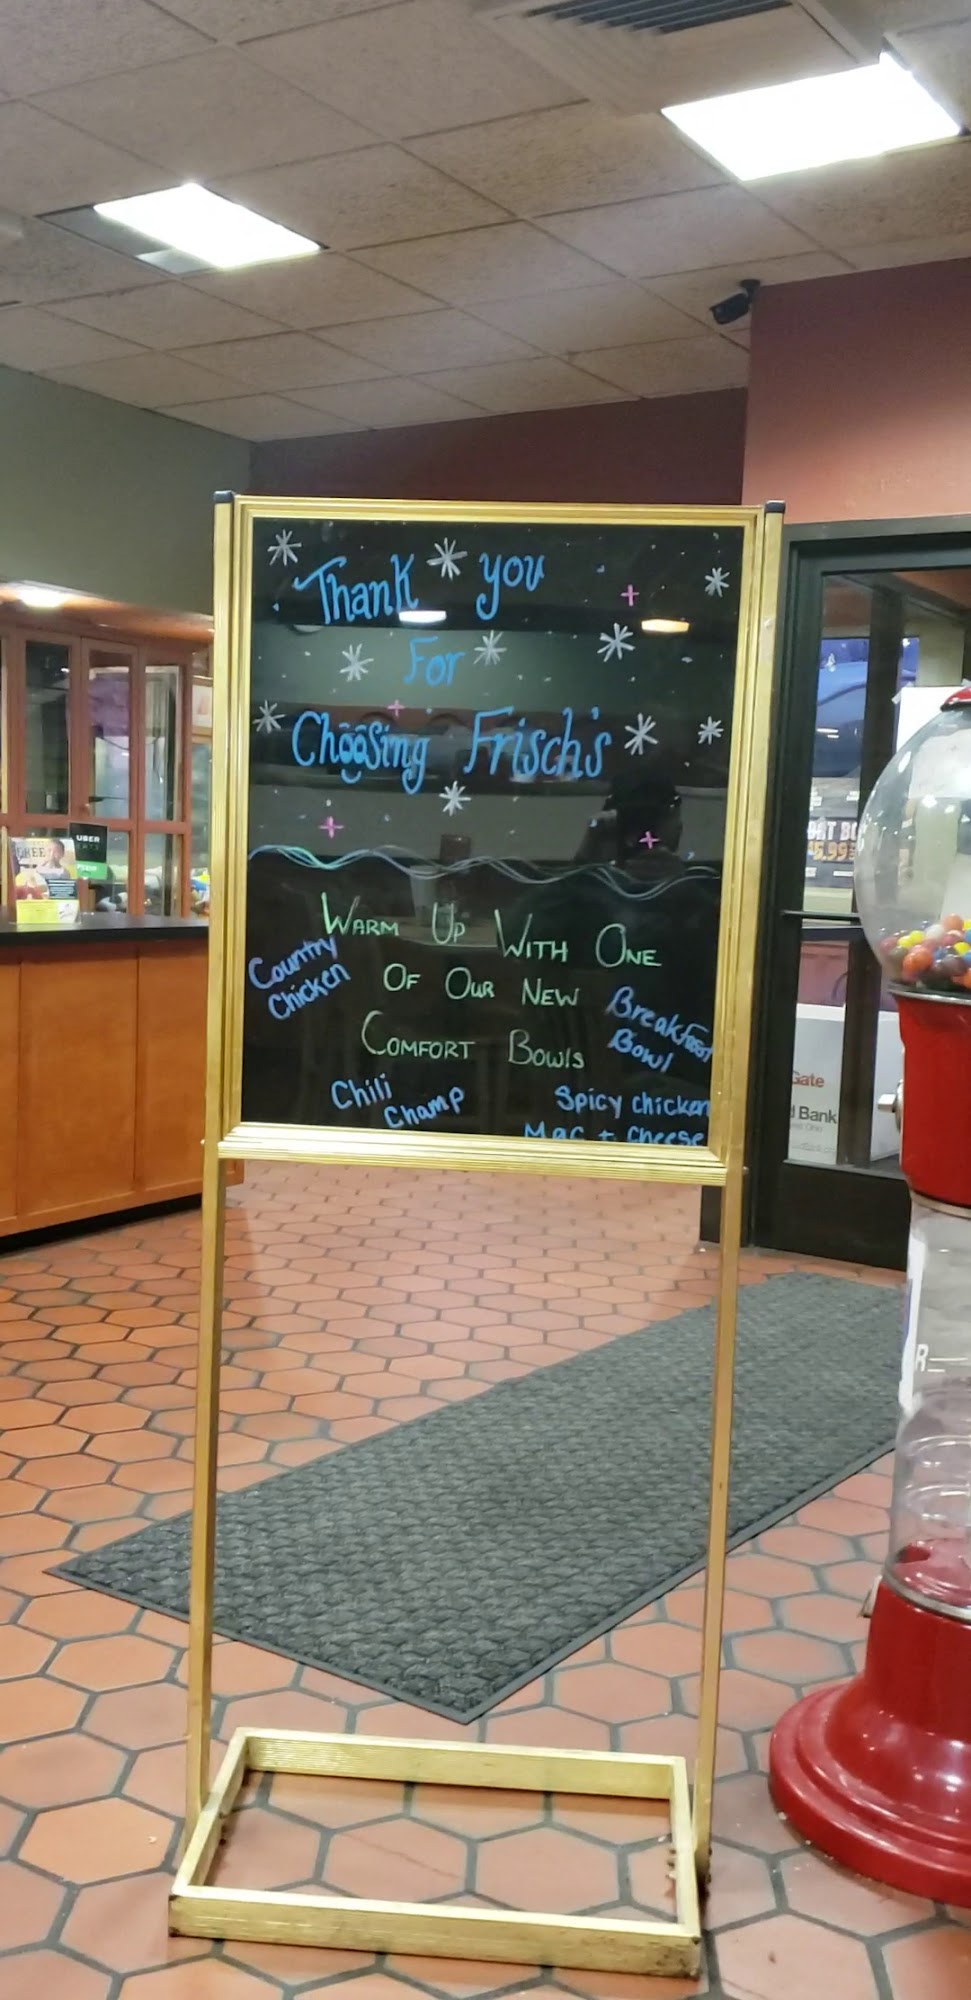 Thank you
For
Choosing Frisch's
Warm Up With One
Of Our New
Comfort Bowls
Country
Chicken
Breakfast
Bowl
Chili
Champ
Spicy chicken
Mac + cheese
UBER
EATS
5.99
Gate
d Bank
R